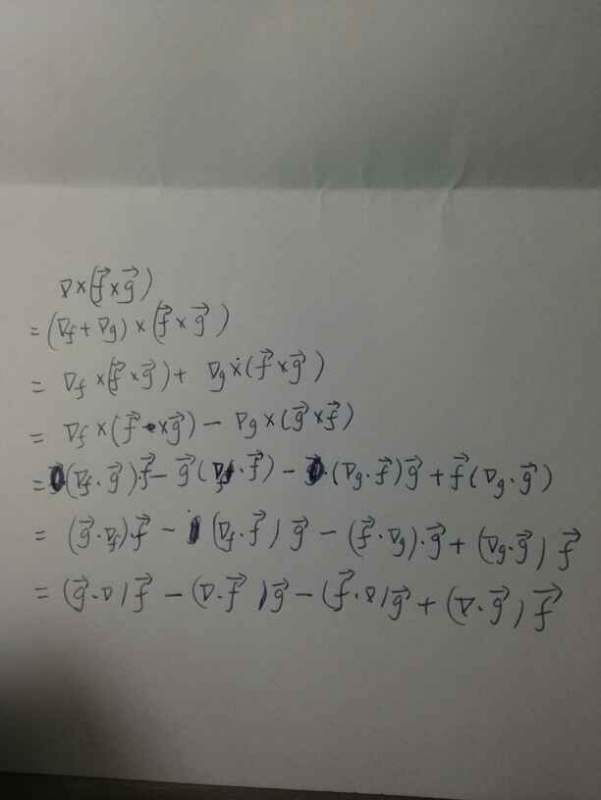 ∇×(f⃗×g⃗)
=(∇f+∇g)×(f⃗×g⃗)
= ∇f×(f⃗×g⃗)+ ∇g×(f⃗×g⃗)
= ∇f×(f⃗×g⃗)− ∇g×(g⃗×f⃗)
=(∇f·g⃗)·f⃗−g⃗(∇f·f⃗)−(∇g·f⃗)g⃗+f⃗(∇g·g⃗)
= (g⃗·∇f)·f⃗−(∇f·f⃗)g⃗−(f⃗·∇g)·g⃗+(∇g·g⃗)f⃗
= (g⃗·∇)f⃗−(∇·f⃗)g⃗−(f⃗·∇)g⃗+(∇·g⃗)f⃗